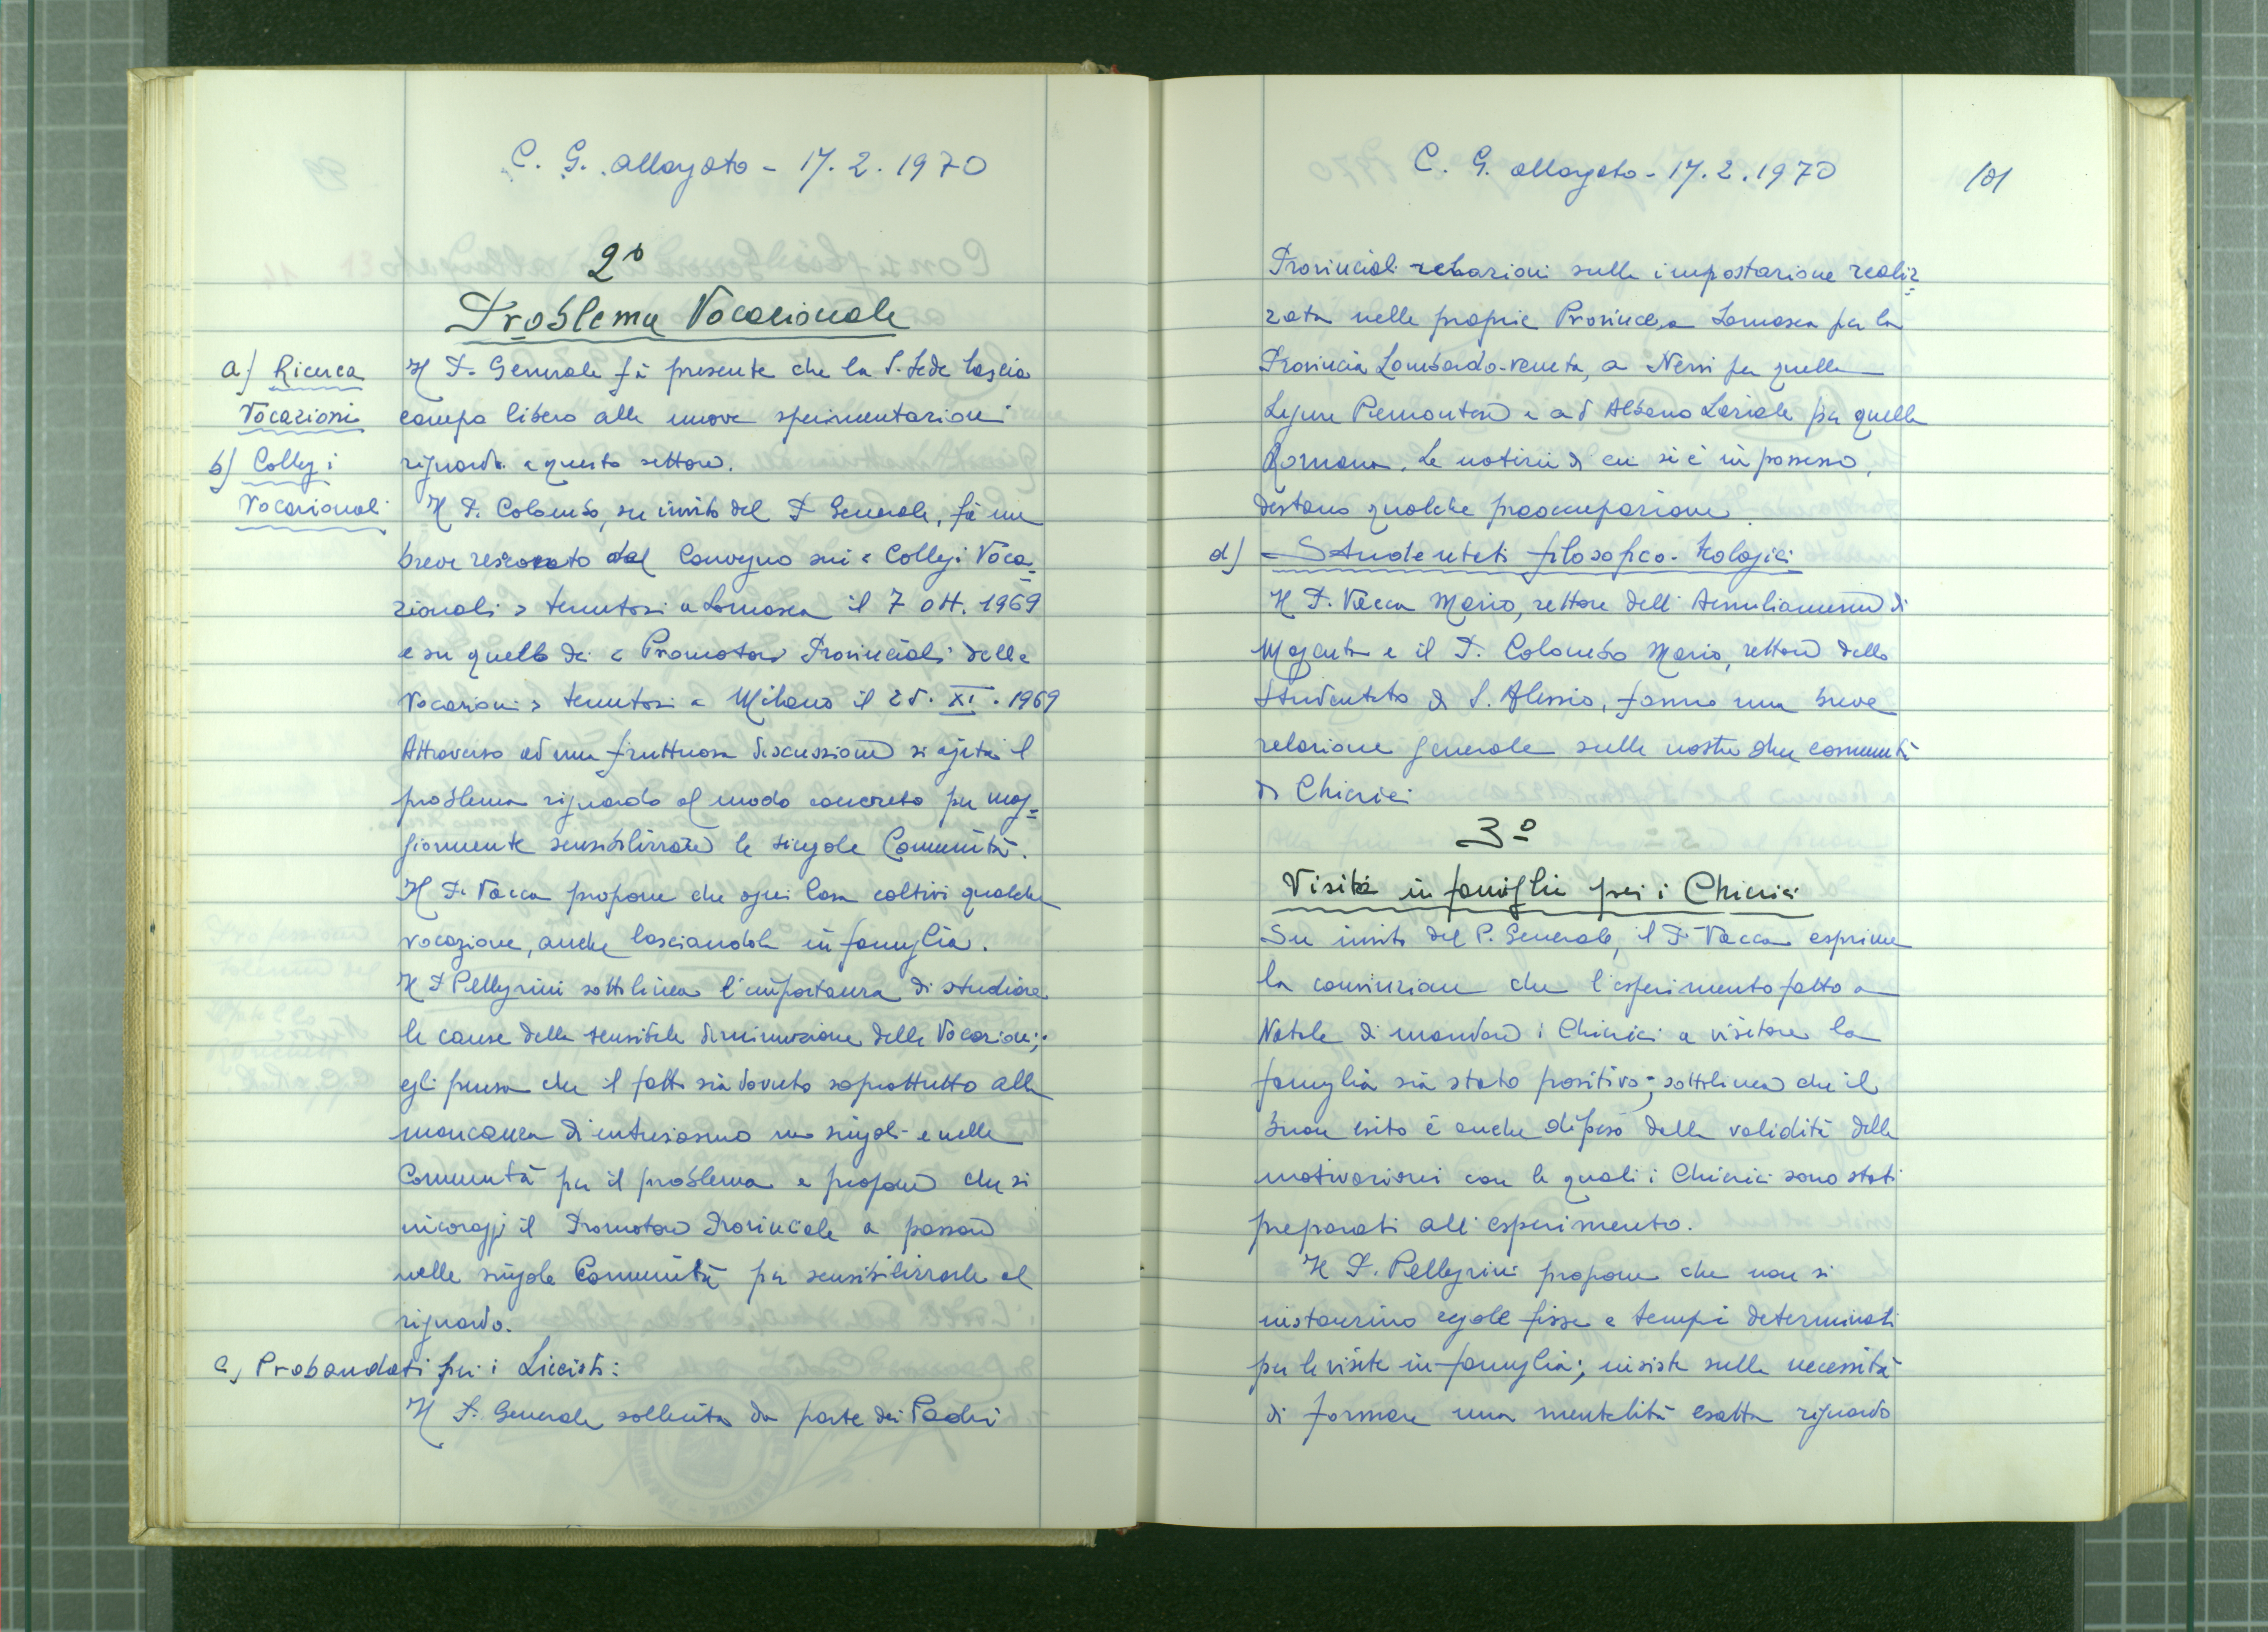 C. G. allargato - 17. 2. 1970
2°
Problema Vocazionale
a) Ricerca
Vocazioni
b) Collegi
Vocazionali
Il P. Generale fà presente che la S. Sede lascia
campo libero alle nuove sperimentazioni
riguardo a questo settore.
Il P. Colombo, su invito del P. Generale, fà un
breve resoconto dal Convegno sui « Collegi Voca=
zionali » tenutosi a Somasca il 7 ott. 1969
e su quello dei « Promotori Provinciali delle
Vocazioni » tenutosi a Milano il 25. XI. 1969
Attraverso ad una fruttuosa discussione si agita il
problema riguardo al modo concreto per mag=
giormente sensibilizzare le singole Comunità.
Il P. Vacca propone che ogni Casa coltivi qualche
vocazione, anche lasciandola in famiglia.
Il P. Pellegrini sottolinea l'importanza di studiare
le cause della sensibile diminuzione delle Vocazioni;
egli pensa che il fatto sia dovuto soprattutto alla
mancanza di entusiasmo nei singoli e nelle
Comunità per il problema e propone che si
incoraggi il Promotore Provinciale a passare
nelle singole Comunità per sensibilizzarle al
riguardo.
c) Probandati per i Liceisti:
Il P. Generale sollecita da parte dei Padri
C. G. allargato - 17. 2. 1970
101
Provinciali relazioni sulla impostazione realiz=
zata nelle proprie Province, a Somasca per la
Provincia Lombardo-Veneta, a Nervi per quella
Ligure Piemontese e ad Albano Laziale per quella
Romana. Le notizie di cui si è in possesso,
destano qualche preoccupazione.
d) Studentati filosofico-teologici
Il P. Vacca Mario, rettore dell'Aemilianum di
Magenta e il P. Colombo Mario, rettore dello
Studentato di S. Alessio, fanno una breve
relazione generale sulle nostre due comunità
di Chierici
3°
Visita in famiglia per i Chierici
Su invito del P. Generale, il P. Vacca esprime
la convinzione che l'esperimento fatto a
Natale di mandare i Chierici a visitare la
famiglia sia stato positivo; sottolinea che il
buon esito è anche dipeso dalla validità delle
motivazioni con le quali i Chierici sono stati
preparati all'esperimento.
Il P. Pellegrini propone che non si
instaurino regole fisse e tempi determinati
per le visite in famiglia; insiste sulla necessità
di formare una mentalità esatta riguardo